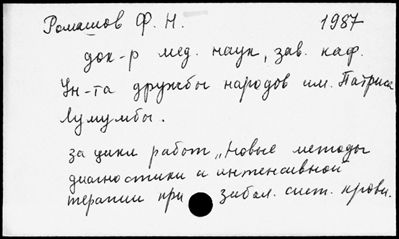 Ромашов Ф. Н. 1987
док-р мед. наук, зав. каф.
Ун-та дружбы народов им. Патриса
Лумумбы.
за цикл работ „Новые методы
диагностики и интенсивной
терапии при забол. сист. крови.